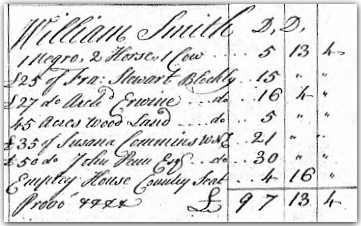 William Smith D. D.
1 Negro, 2 Horse, 1 Cow ... 5 13 4
£25 of Fra: Stewart Blockly 15 " "
£27 do Arch.d Erwine do 16 4 "
45 Acres Wood Land do 5 " "
£35 of Susana Commins 21 " "
£50 do John Penn Esqr do 30 " "
Emptey House Country Seat 4 16 "
Provo £ 97 13 4